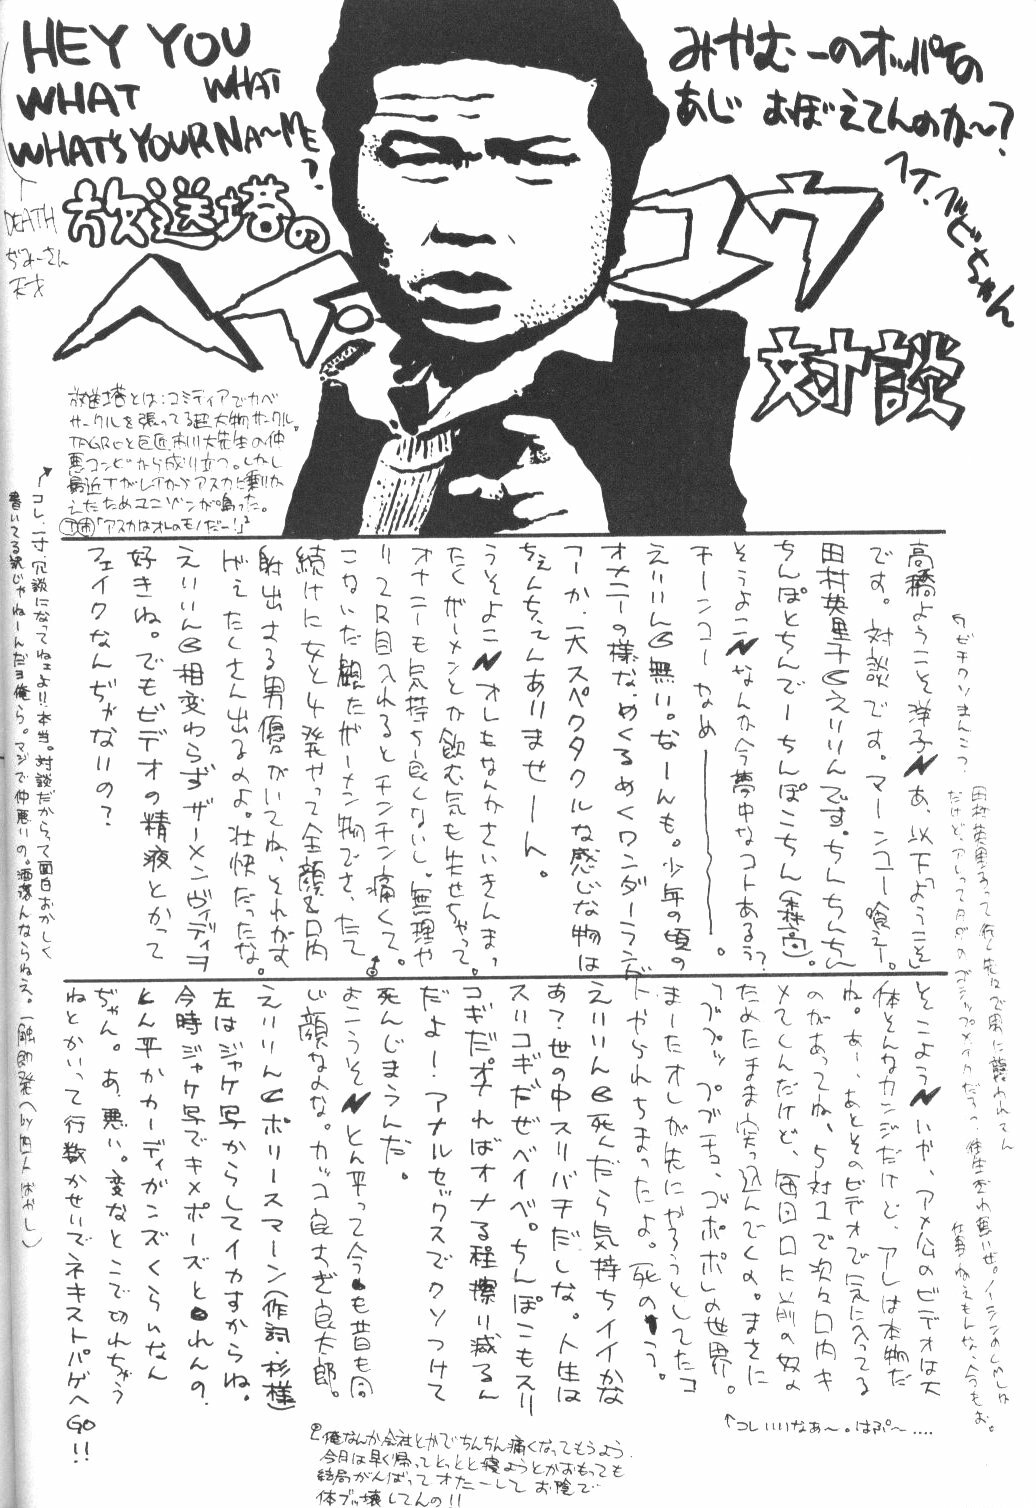 HEY YOU
WHAT WHAT
WHAT'S YOUR NA〜ME?
DEATH
ぢゅーさん
天才
みやむーのオッパイの
あじ おぼえてんのか〜?
放送塔の
ヘッポコウ
対談
放送塔とは:コミティアでカベ
サークルを張ってる超大物サークル。
TAGROと巨匠市川大先生の仲
悪コンビから成り立つ。しかし
最近Tがレイからアスカに乗りか
えたためユニゾンが鳴った。
「アスカはオレのモノだー!」
コレ、一寸冗談になってねェよ!!本当。対談だからって面白おかしく
書いてる訳じゃねーんだヨ俺ら。マジで仲悪いの。洒落んならねえ。
高橋ようこそ洋子 あ、以下「ようこそ」
です。対談です。マーンコー喰えー。
田村英里子 えりりんです。ちんちんちん
ちんぽとちんでーちんぽこちん(森高)。
そうよこ なんか今夢中なコトあるぅ?
チーンコー なめ――――。
えりりん 無い。なーんも。少年の頃の
オメニーの様な、めくるめくワンダーランド
つーか、一大スペクタクルな感じな物は
ちぇんちぇんありませーん。
うそよこ オレもなんかさいきんまっ
たくザーメンとか飲む気も失せちゃって。
オナニーも気持ち良くないし。無理や
り2R目入れるとチンチン痛くて。
こないだ観たザーメン物でさ、たて
続けに女と4発やって全顔&口内
射出する男優がいてね、それがす
げえたくさん出るのよ。壮快だったな。
えりりん 相変わらずザーメンヴィディオ
好きね。でもビデオの精液とかって
フェイクなんぢゃないの?
そこよう いや、アメ公のビデオは大
体そんなカンジだけど、アレは本物だ
ね。あー、あとそのビデオで気に入ってる
のがあってね、5対1で次々口内キ
メてくんだけど、毎回口に前の奴の
ためたまま突っ込んでくの。まさに
ブブッププチュ、ゴポポしの世界。
まーたオレが先にやろうとしてたコ
トやられちまったよ。死のう。
えりりん 死んだら気持ちイイかな
あ?世の中スリバチだしな。人生は
スリコギだぜベイベ。ちんぽこもスリ
コギだ。オナればオナる程擦り減るん
だよー!アナルセックスでクソつけて
死んじまうんだ。
よこうそ とん平って今も昔も同
じ顔なのな。カッコ良すぎ良太郎。
えりりん ポリースマーン(作詞・杉様)
左はジャケ写からしてイカすからね。
今時ジャケ写でキメポーズとれんの、
とん平かカーディガンズくらいなん
ぢゃん。あ、悪い。変なとこで切れちゃう
ねとかいって行数かせいでネキストパゲへGO!!
↑コレいいなあ〜。はぷ〜....
俺なんか会社とかでちんちん痛くなってもうよう
今日は早く帰ってとっとと寝ようとかおもっても
結局がんばってオナニーして お陰で
体ブッ壊してんの!!